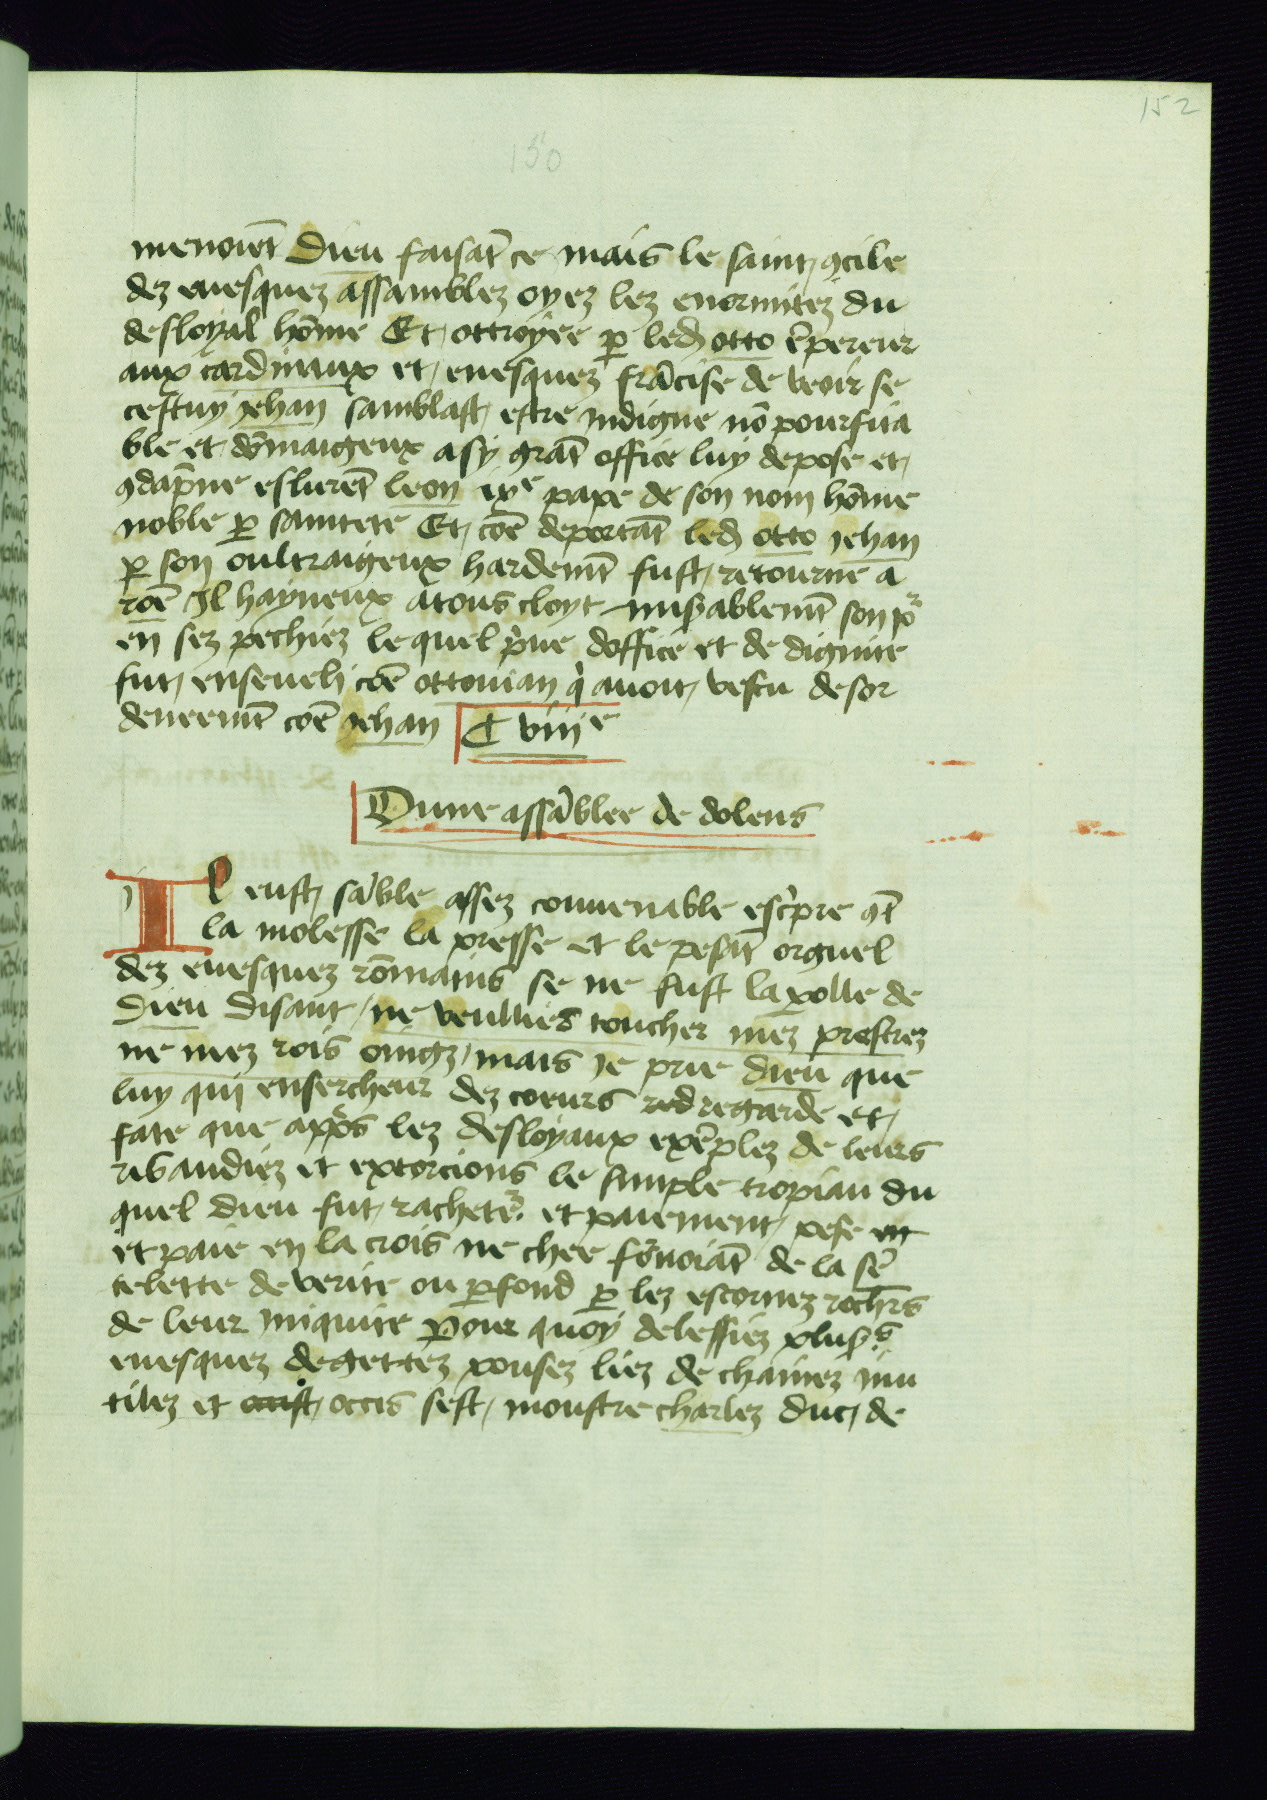 152
150
menoiēt Dieu faisāt ce mais le saint ꝯcile
dez euesquez assamblez oyez lez enormitez du
desloyal hōme Et ottroyee ꝑ led otto ēpereur
aux cardinaux et euesquez frācise de veoir se
cestuy jehan samblast estre indigne nō pourfita
ble et dōmaigeux a sy grāt office luy depose et
ꝯdāpne eslurēt leon ixe pape de son nom hōme
noble ꝑ saintete Et cōe deportāt led otto jehan
ꝑ son oultraigeux hardemt fust retourne a
rōe Il hayneux a tous cloyt misablemt son
en sez pechiez le quel pͥue doffice et de dignite
fut enseueli cōe ottouian qͥ auoit vescu desor
deneemt cōe jehan C viije
Dune assāblee de dolens
Il eust sāble assez conuenable escͥpre ꝯt
la molesse la presse et le pesāt orguel
dez euesquez rōmains se ne fust la polle de
Dieu disant / ne veulliés toucher mez prestrez
ne mez rois oingz / mais je prie dieu que
luy qui ensercheur dez coeurs red regarde et
face que appͣs lez desloyaux exēplez de leurs
ribaudiez et extorcions le simple tropiau du
quel dieu fut rachetͬ et paiement pese et
et paie en la crois ne chee fōuoiāt de la sē
telette de verite ou ꝑfond ꝑ lez escornez rochrs
de leur iniquite Pour quoy delessiez plusrs
euesquez degettez pousez liez de chainez mu
tilez et occist occis sest monstre charlez duc de